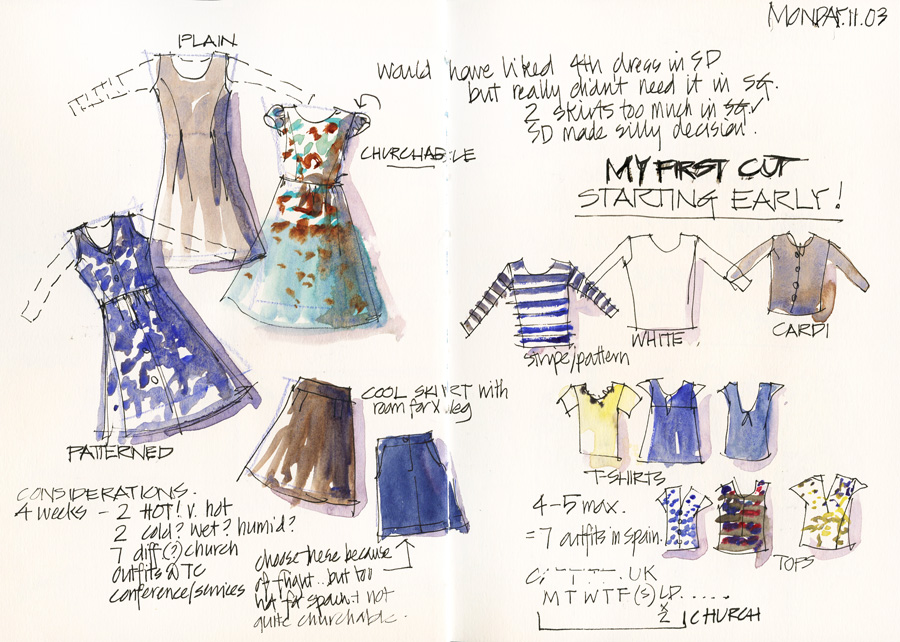 MONDAY.11.03
PLAIN
would have liked 4th dress in SD
but really didn't need it in SG.
2 skirts too much in SG.
SD made silly decision.
CHURCHABLE
MY FIRST CUT
STARTING EARLY!
stripe/pattern
WHITE
CARDI
COOL SKIRT with
room for X. leg
PATTERNED
T-SHIRTS
CONSIDERATIONS.
4 weeks - 2 HOT! v. hot
2 cold? wet? humid?
7 diff(?) church
outfits @ TC
conference/services
choose these because
of flight.. but too
hot for spain + not
quite churchable.
4-5 max.
= 7 outfits in spain.
TOPS
UK
M T W T F (S) LP.....
2
CHURCH